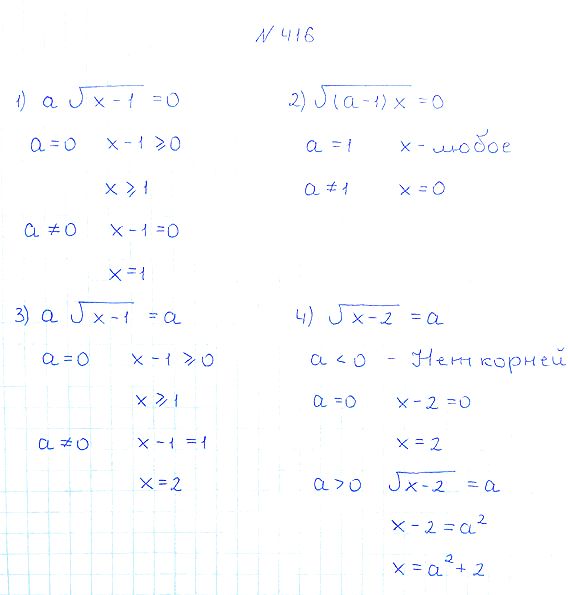 N 416
1) a √(x-1) = 0
a = 0 x - 1 ⩾ 0
x ⩾ 1
a ≠ 0 x - 1 = 0
x = 1
2) √((a-1)x) = 0
a = 1 x - любое
a ≠ 1 x = 0
3) a √(x-1) = a
a = 0 x - 1 ⩾ 0
x ⩾ 1
a ≠ 0 x - 1 = 1
x = 2
4) √(x-2) = a
a < 0 - Нет корней
a = 0 x - 2 = 0
x = 2
a > 0 √(x-2) = a
x - 2 = a²
x = a² + 2